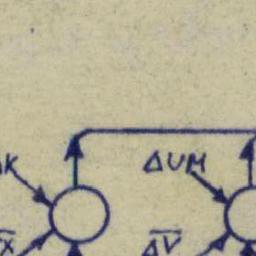 K
ΔUM
X̅
ΔV̅